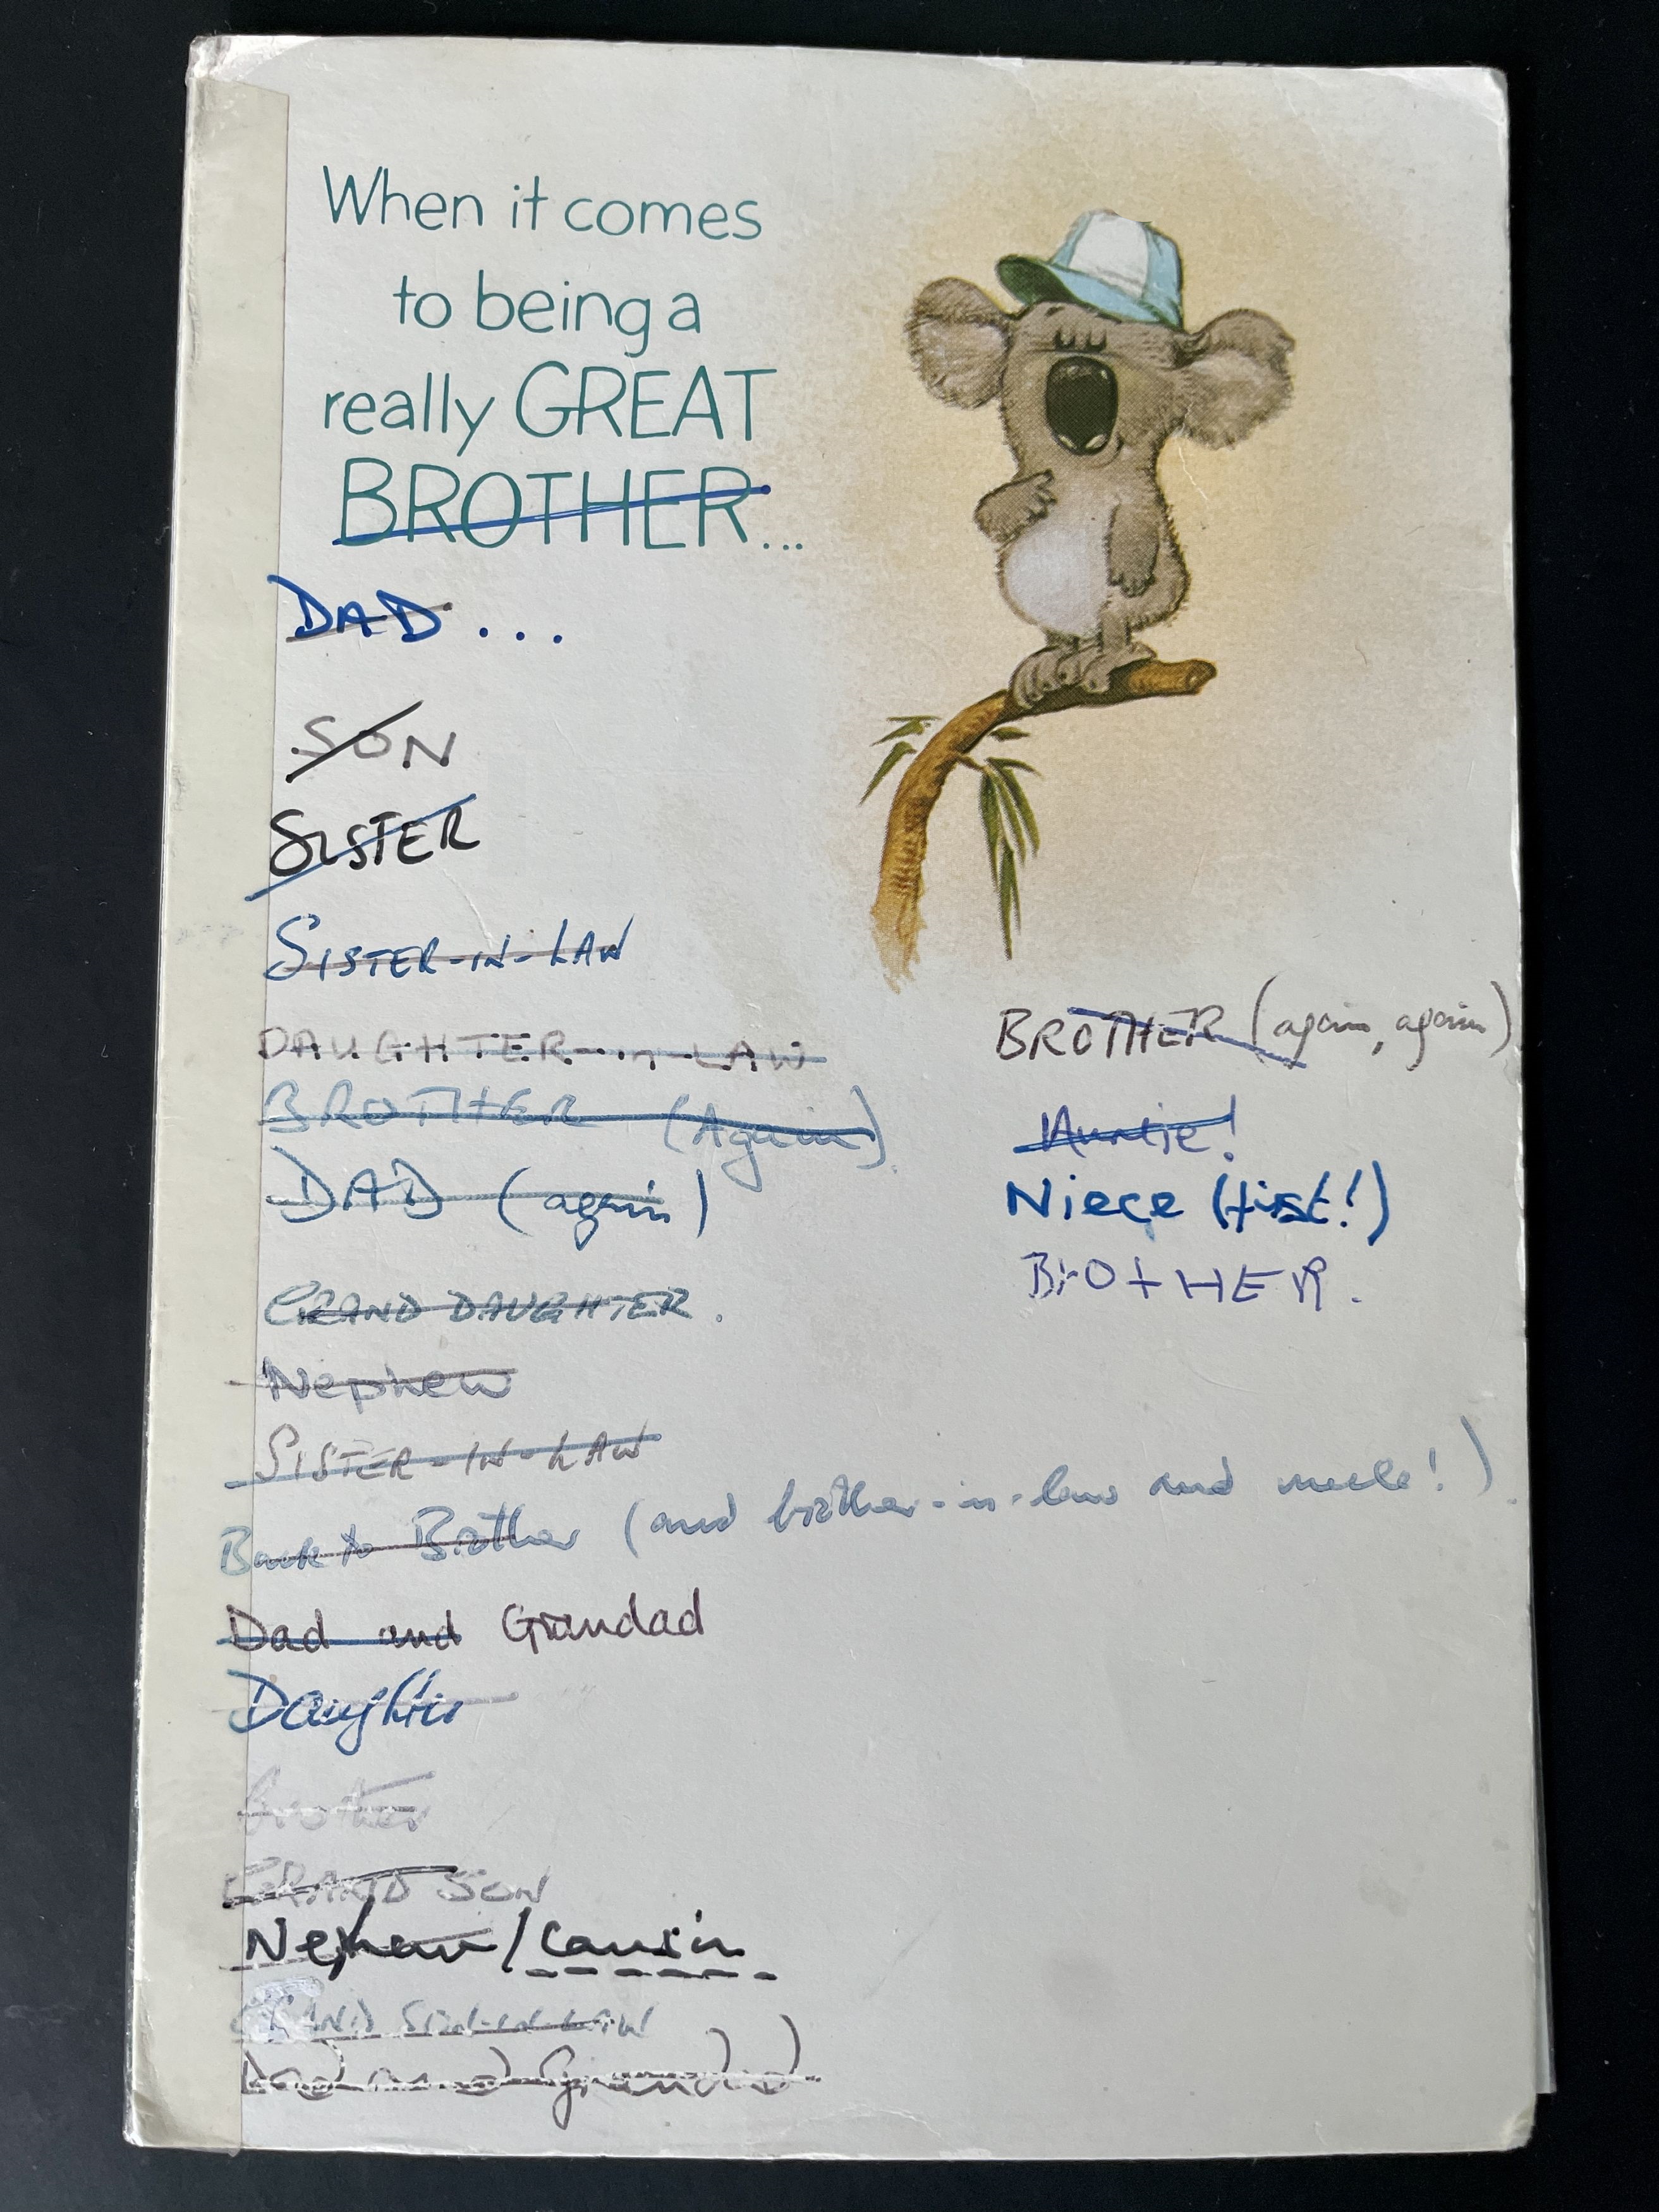 When it comes
to being a
really GREAT
BROTHER...
DAD...
SON
SISTER
SISTER-IN-LAW
DAUGHTER-in-LAW
BROTHER (Again).
DAD (again)
GRAND DAUGHTER.
Nephew
SISTER-IN-LAW
Back to Brother (and brother-in-law and uncle!).
Dad and Grandad
Daughter
Brother
GRAND SON
Nephew/Cousin
GRAND SON-IN-LAW
Dad and Grandad
BROTHER (again, again)
Auntie!
Niece (first!)
BrOtHER.